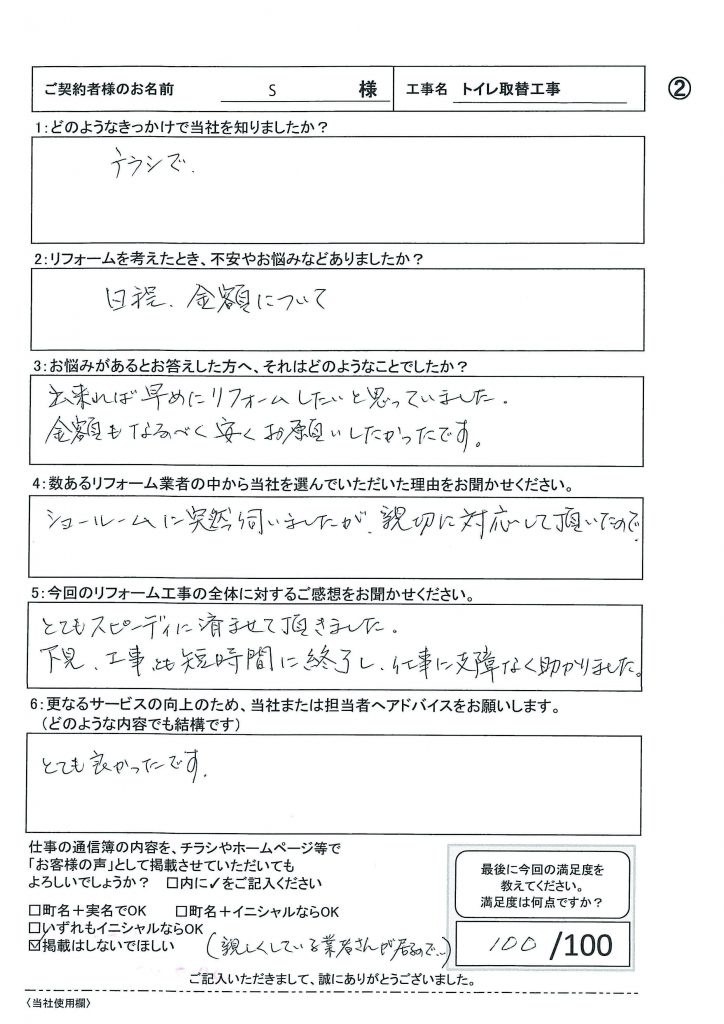 ご契約者様のお名前 S 様 工事名 トイレ取替工事 ②
1:どのようなきっかけで当社を知りましたか?
チラシで.
2:リフォームを考えたとき、不安やお悩みなどありましたか?
日程、金額について
3:お悩みがあるとお答えした方へ、それはどのようなことでしたか?
出来れば早めにリフォームしたいと思っていました。
金額もなるべく安くお願いしたかったです。
4:数あるリフォーム業者の中から当社を選んでいただいた理由をお聞かせください。
ショールームに突然伺いましたが、親切に対応して頂いたので
5:今回のリフォーム工事の全体に対するご感想をお聞かせください。
とてもスピーディに済ませて頂きました。
下見、工事とも短時間に終了し、仕事に支障なく助かりました。
6:更なるサービスの向上のため、当社または担当者へアドバイスをお願いします。
(どのような内容でも結構です)
とても良かったです.
仕事の通信簿の内容を、チラシやホームページ等で
「お客様の声」として掲載させていただいても
よろしいでしょうか? □内に✓をご記入ください
□町名+実名でOK □町名+イニシャルならOK
□いずれもイニシャルならOK
☑掲載はしないでほしい (親しくしている業者さんが居るので…)
最後に今回の満足度を
教えてください。
満足度は何点ですか?
100 /100
ご記入いただきまして、誠にありがとうございました。
〈当社使用欄〉